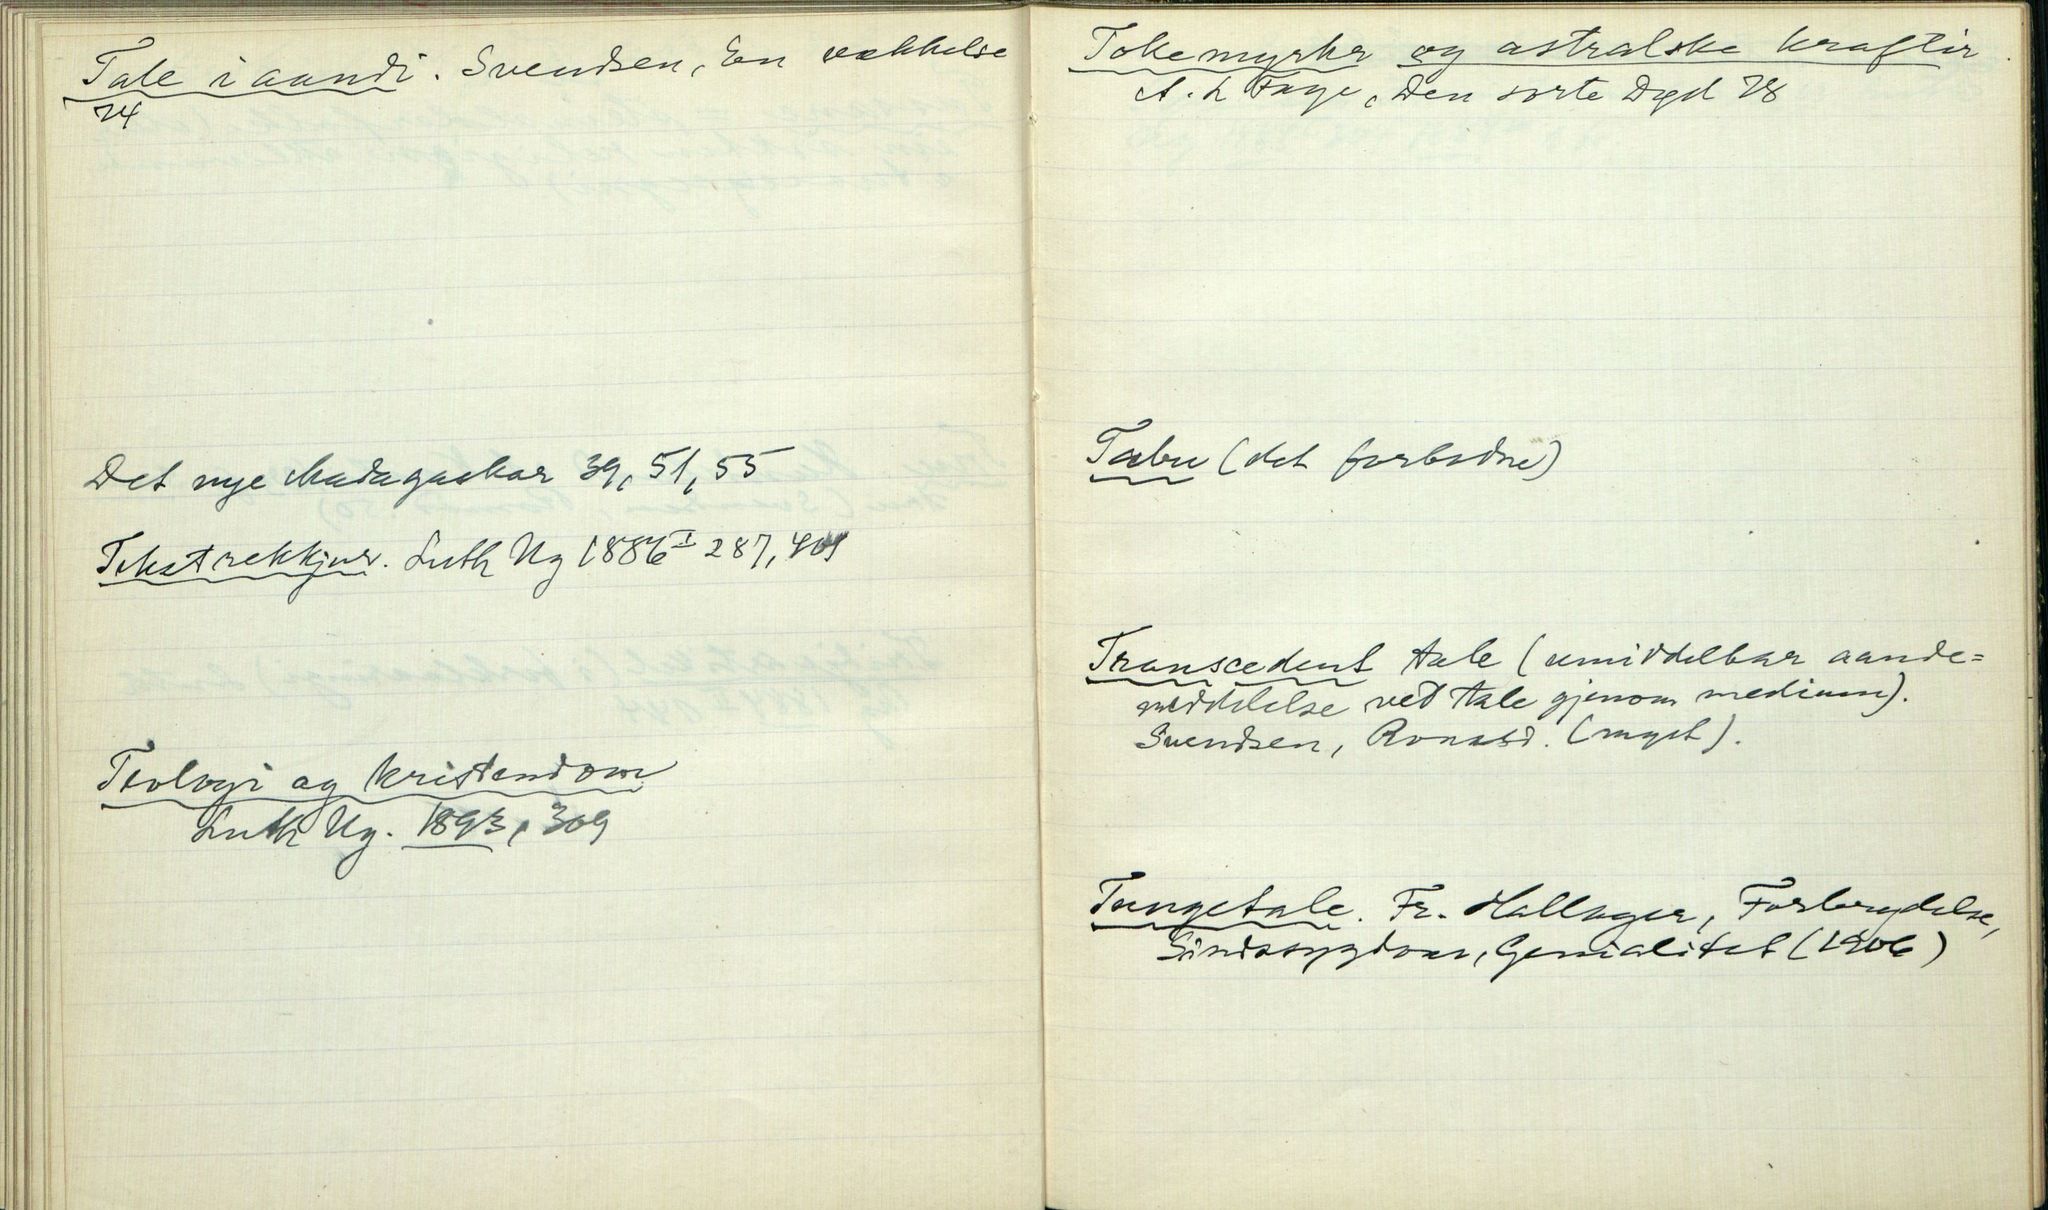 Tale i aandi. Svendsen, En vekkelse
74
Det nye Madagaskar 39, 51, 55
Tekstrekkjur. Luth Ug 1886 I 287, 401
Teologi og kristendom
Luth Ug. 1893, 309
Tokemyrkr og astralske kraftir.
A. L Faye, Den sorte Død 78
Tabu (det forbodne)
Transcedent tale (umiddelbar aande=
meddelelse ved tale gjenom medium).
Svendsen, Romsd. (myset).
Tungetale. Fr. Hallager, Forbrydelse,
Sindssygdom, Genialitet (1906)